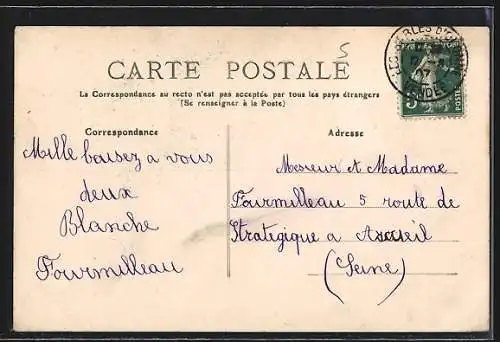 5
CARTE POSTALE
La Correspondance au recto n'est pas acceptée par tous les pays étrangers
(Se renseigner à la Poste)
Correspondance
Adresse
Mille baisez a vous
deux
Blanche
Fourmilleau
Mesieur et Madame
Fourmilleau 5 route de
Strategique a
(Seine)
LES SABLES D'OLONNE
07
VENDEE
5
POSTES